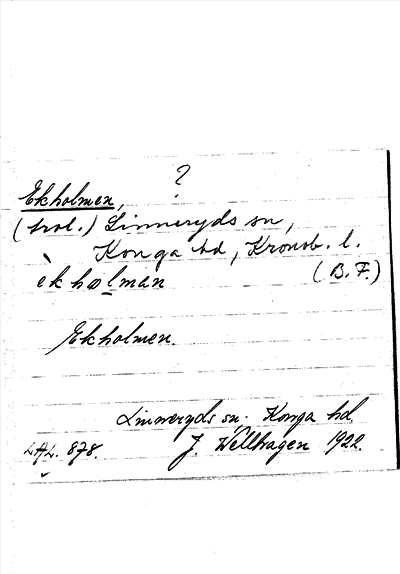 ?
Ekholmen,
(trol.) Linneryds sn,
Konga hd, Kronob. l.
èkhɷlman (B.F.)
Ekholmen.
Linneryds sn. Konga hd.
LAL. 878. J. Wellhagen 1922.